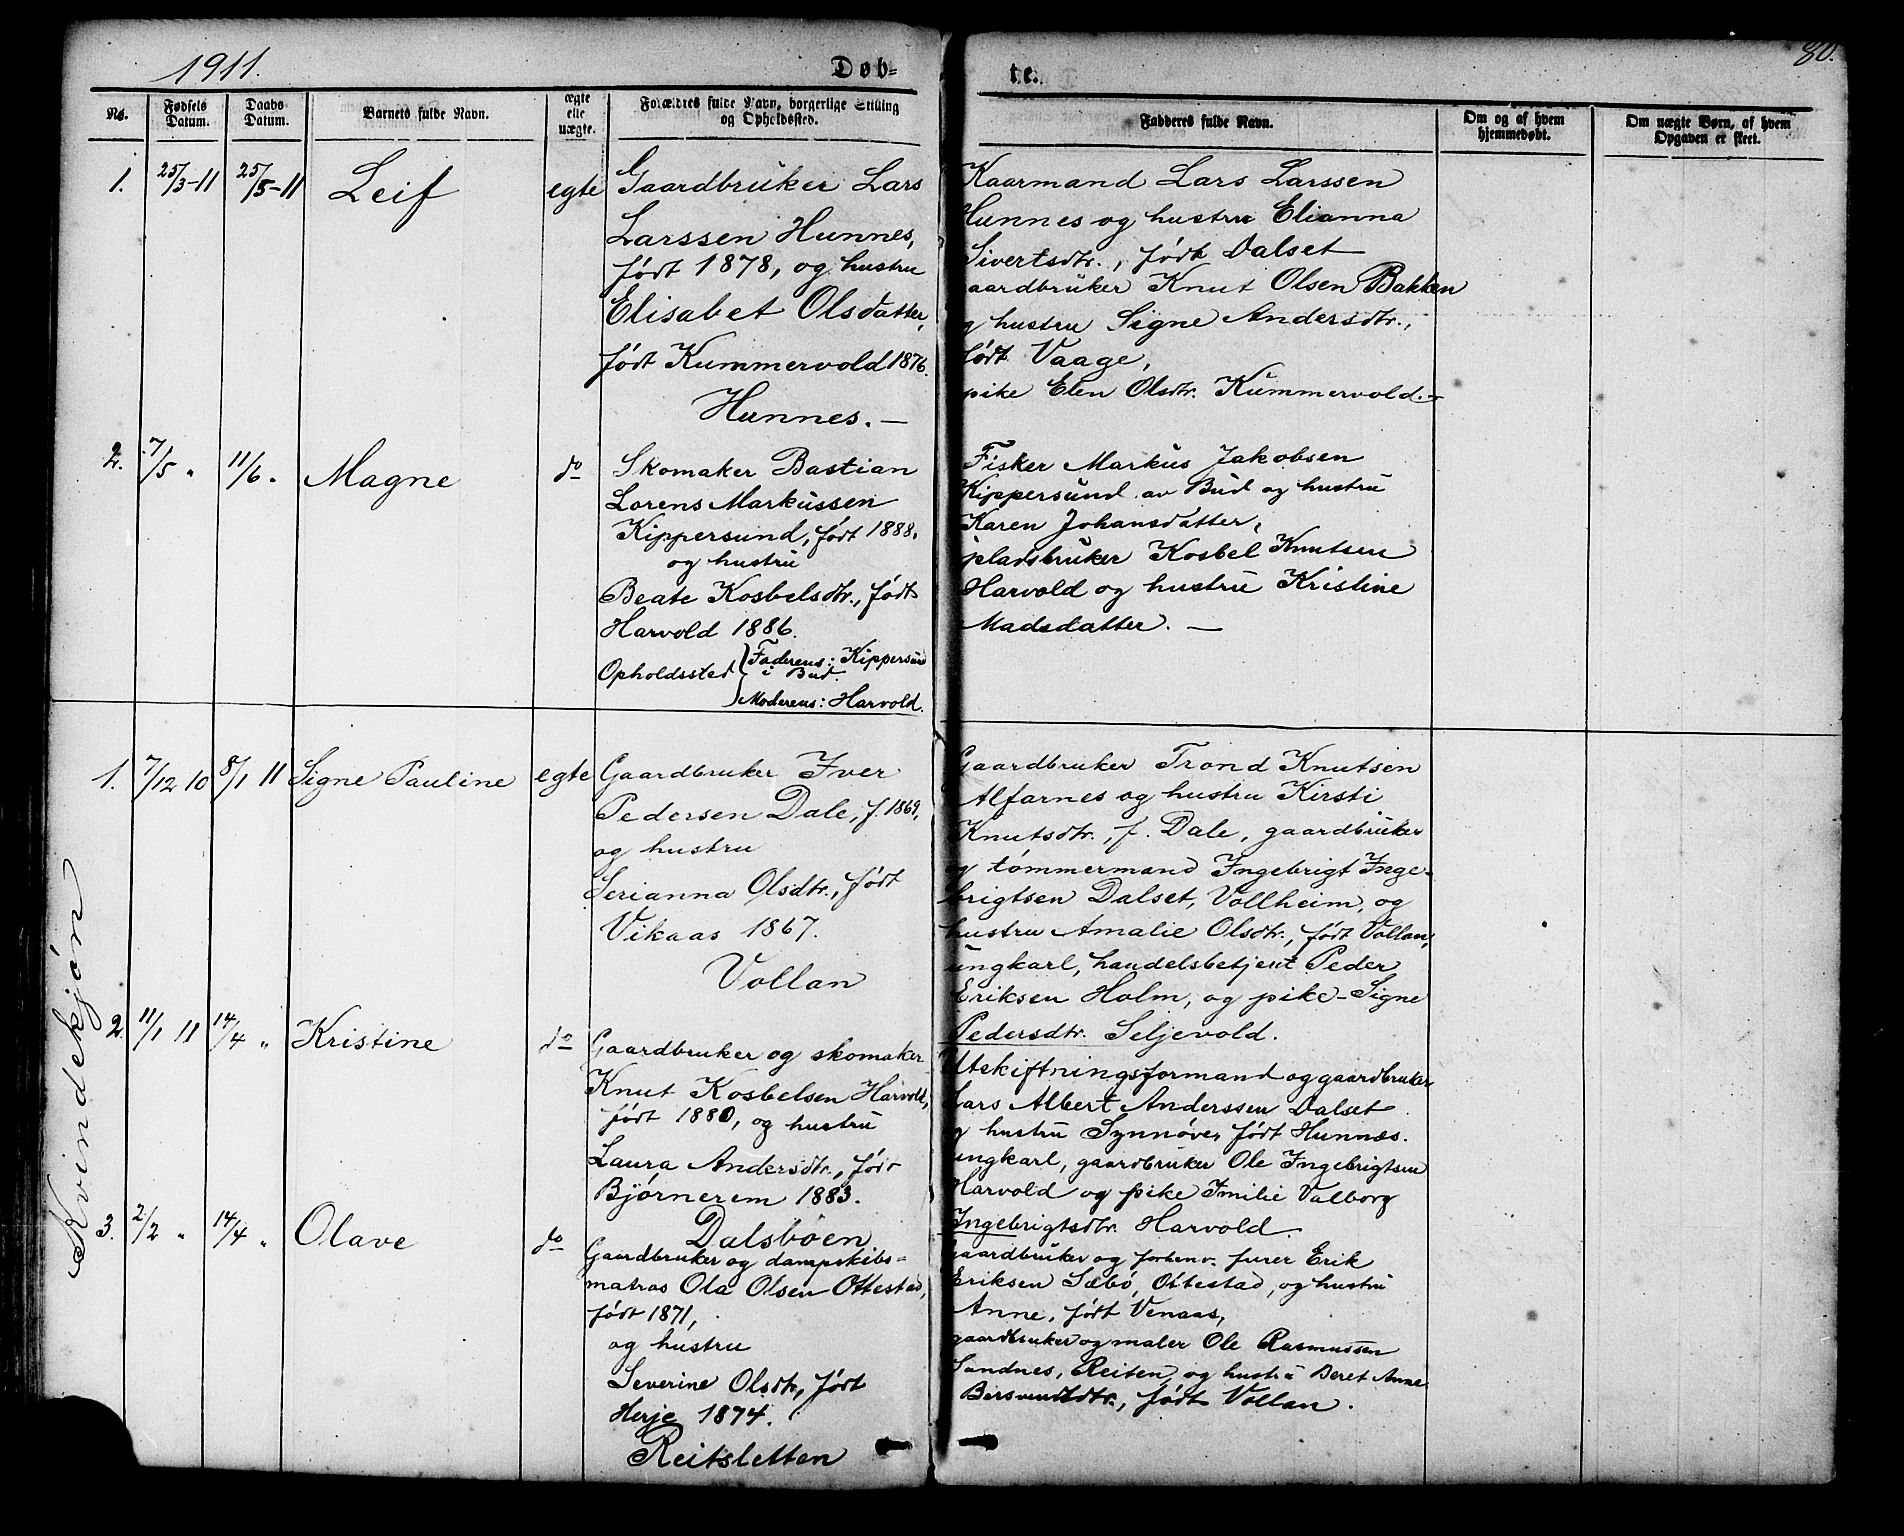 1911.
Døb-
te.
80.
No.
Fødsels Datum.
Daabs Datum.
Barnets fulde Navn.
ægte elle uægte.
Forældres fulde Navn, borgerlige Stilling og Opholdssted.
Fadderes fulde Navn.
Om og af hvem hjemmedøbt.
Om uægte Børn, af hvem Opgaven er skeet.
1. 25/3-11 25/5-11 Leif egte
Gaardbruker Lars
Larssen Hunnes,
født 1878, og hustru
Elisabet Olsdatter,
født Kummervold 1876.
Hunnes. —
Kaarmand Lars Larssen
Hunnes og hustru Elianna
Sivertsdtr., født Dalset
aardbruker Knut Olsen Bakken
g hustru Signe Andersdtr.,
født Vaage,
pike Elen Olsdtr. Kummervold. —
2. 7/5 " 11/6 " Magne do
Skomaker Bastian
Lorens Markussen
Kippersund, født 1888,
og hustru
Beate Kosbelsdtr., født
Harvold 1886.
Opholdssted { Faderens: Kippersund
i Bud.
Moderens: Harvold.
Fisker Markus Jakobsen
Kippersund av Bud og hustru
Karen Johansdatter,
pladsbruker Kosbel Knutsen
Harvold og hustru Kristine
Madsdatter. —
Kvindekjøn
1. 7/12 10 8/1 11 Signe Pauline egte
Gaardbruker Iver
Pedersen Dale, f. 1869,
og hustru
Serianna Olsdtr., født
Vikaas 1867.
Vollan
Gaardbruker Trond Knutsen
Alfarnes og hustru Kirsti
Knutsdtr., f. Dale, gaardbruker
og tømmermand Ingebrigt Inge-
brigtsen Dalset, Vollheim, og
hustru Amalie Olsdtr., født Vollan,
ungkarl, handelsbetjent Peder
Eriksen Holm, og pike Signe
Pedersdtr. Seljevold.
2. 11/1 11 14/4 " Kristine do
Gaardbruker og skomaker
Knut Kosbelsen Harvold,
født 1880, og hustru
Laura Andersdtr., født
Bjørnerem 1883.
Dalsbøen
Utskiftningsformand og gaardbruker
Lars Albert Anderssen Dalset
g hustru Synnøve, født Hunnes.
ungkarl, gaardbruker Ole Ingebrigtsen
Harvold og pike Emilie Valborg
Ingebrigtsdtr. Harvold.
3. 2/2 " 14/4 " Olave do
Gaardbruker og dampskibs-
matros Ola Olsen Ottestad,
født 1871,
og hustru
Severine Olsdtr, født
Herje 1874.
Reitsletten
Gaardbruker og forhenv. furer Erik
Eriksen Sæbø, Ottestad, og hustru
Anne, født Venaas,
gaardbruker og maler Ole Rasmussen
Sandnes, Reiten, og hustru Beret Anne
Bersvendsdtr., født Vollan.